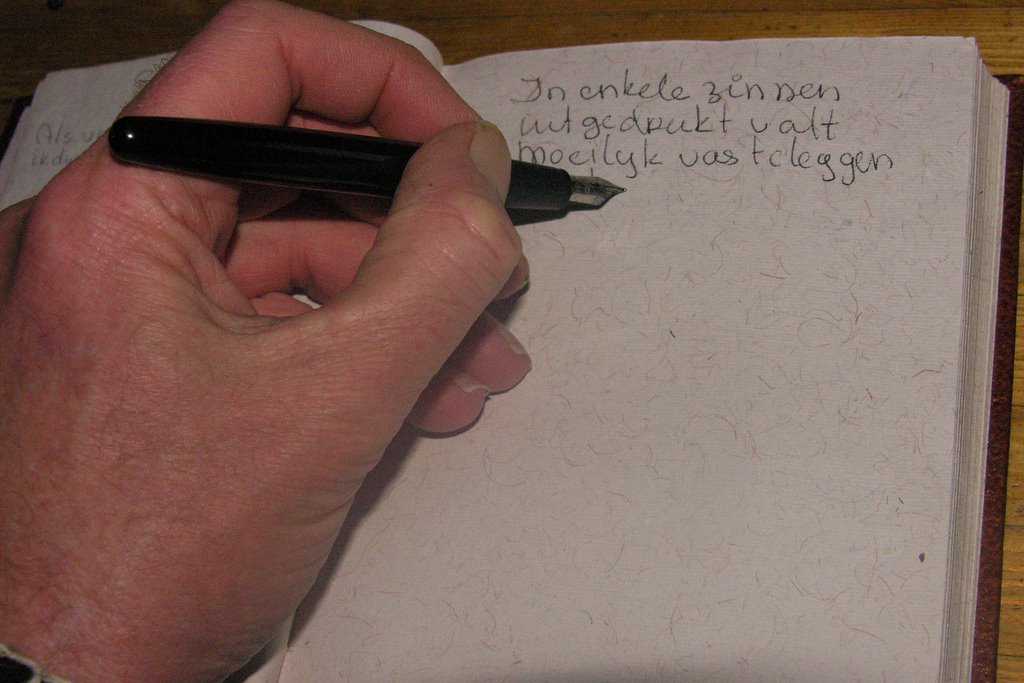 Als
In enkele zinnen
uitgedrukt valt
moeilyk vast te leggen